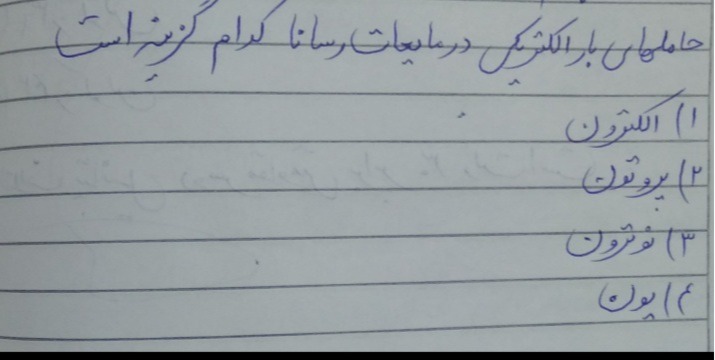 حاملهای بار الکتریکی در مایعات رسانا کدام گزینه است
۱) الکترون
۲) پروتون
۳) نوترون
۴) یون